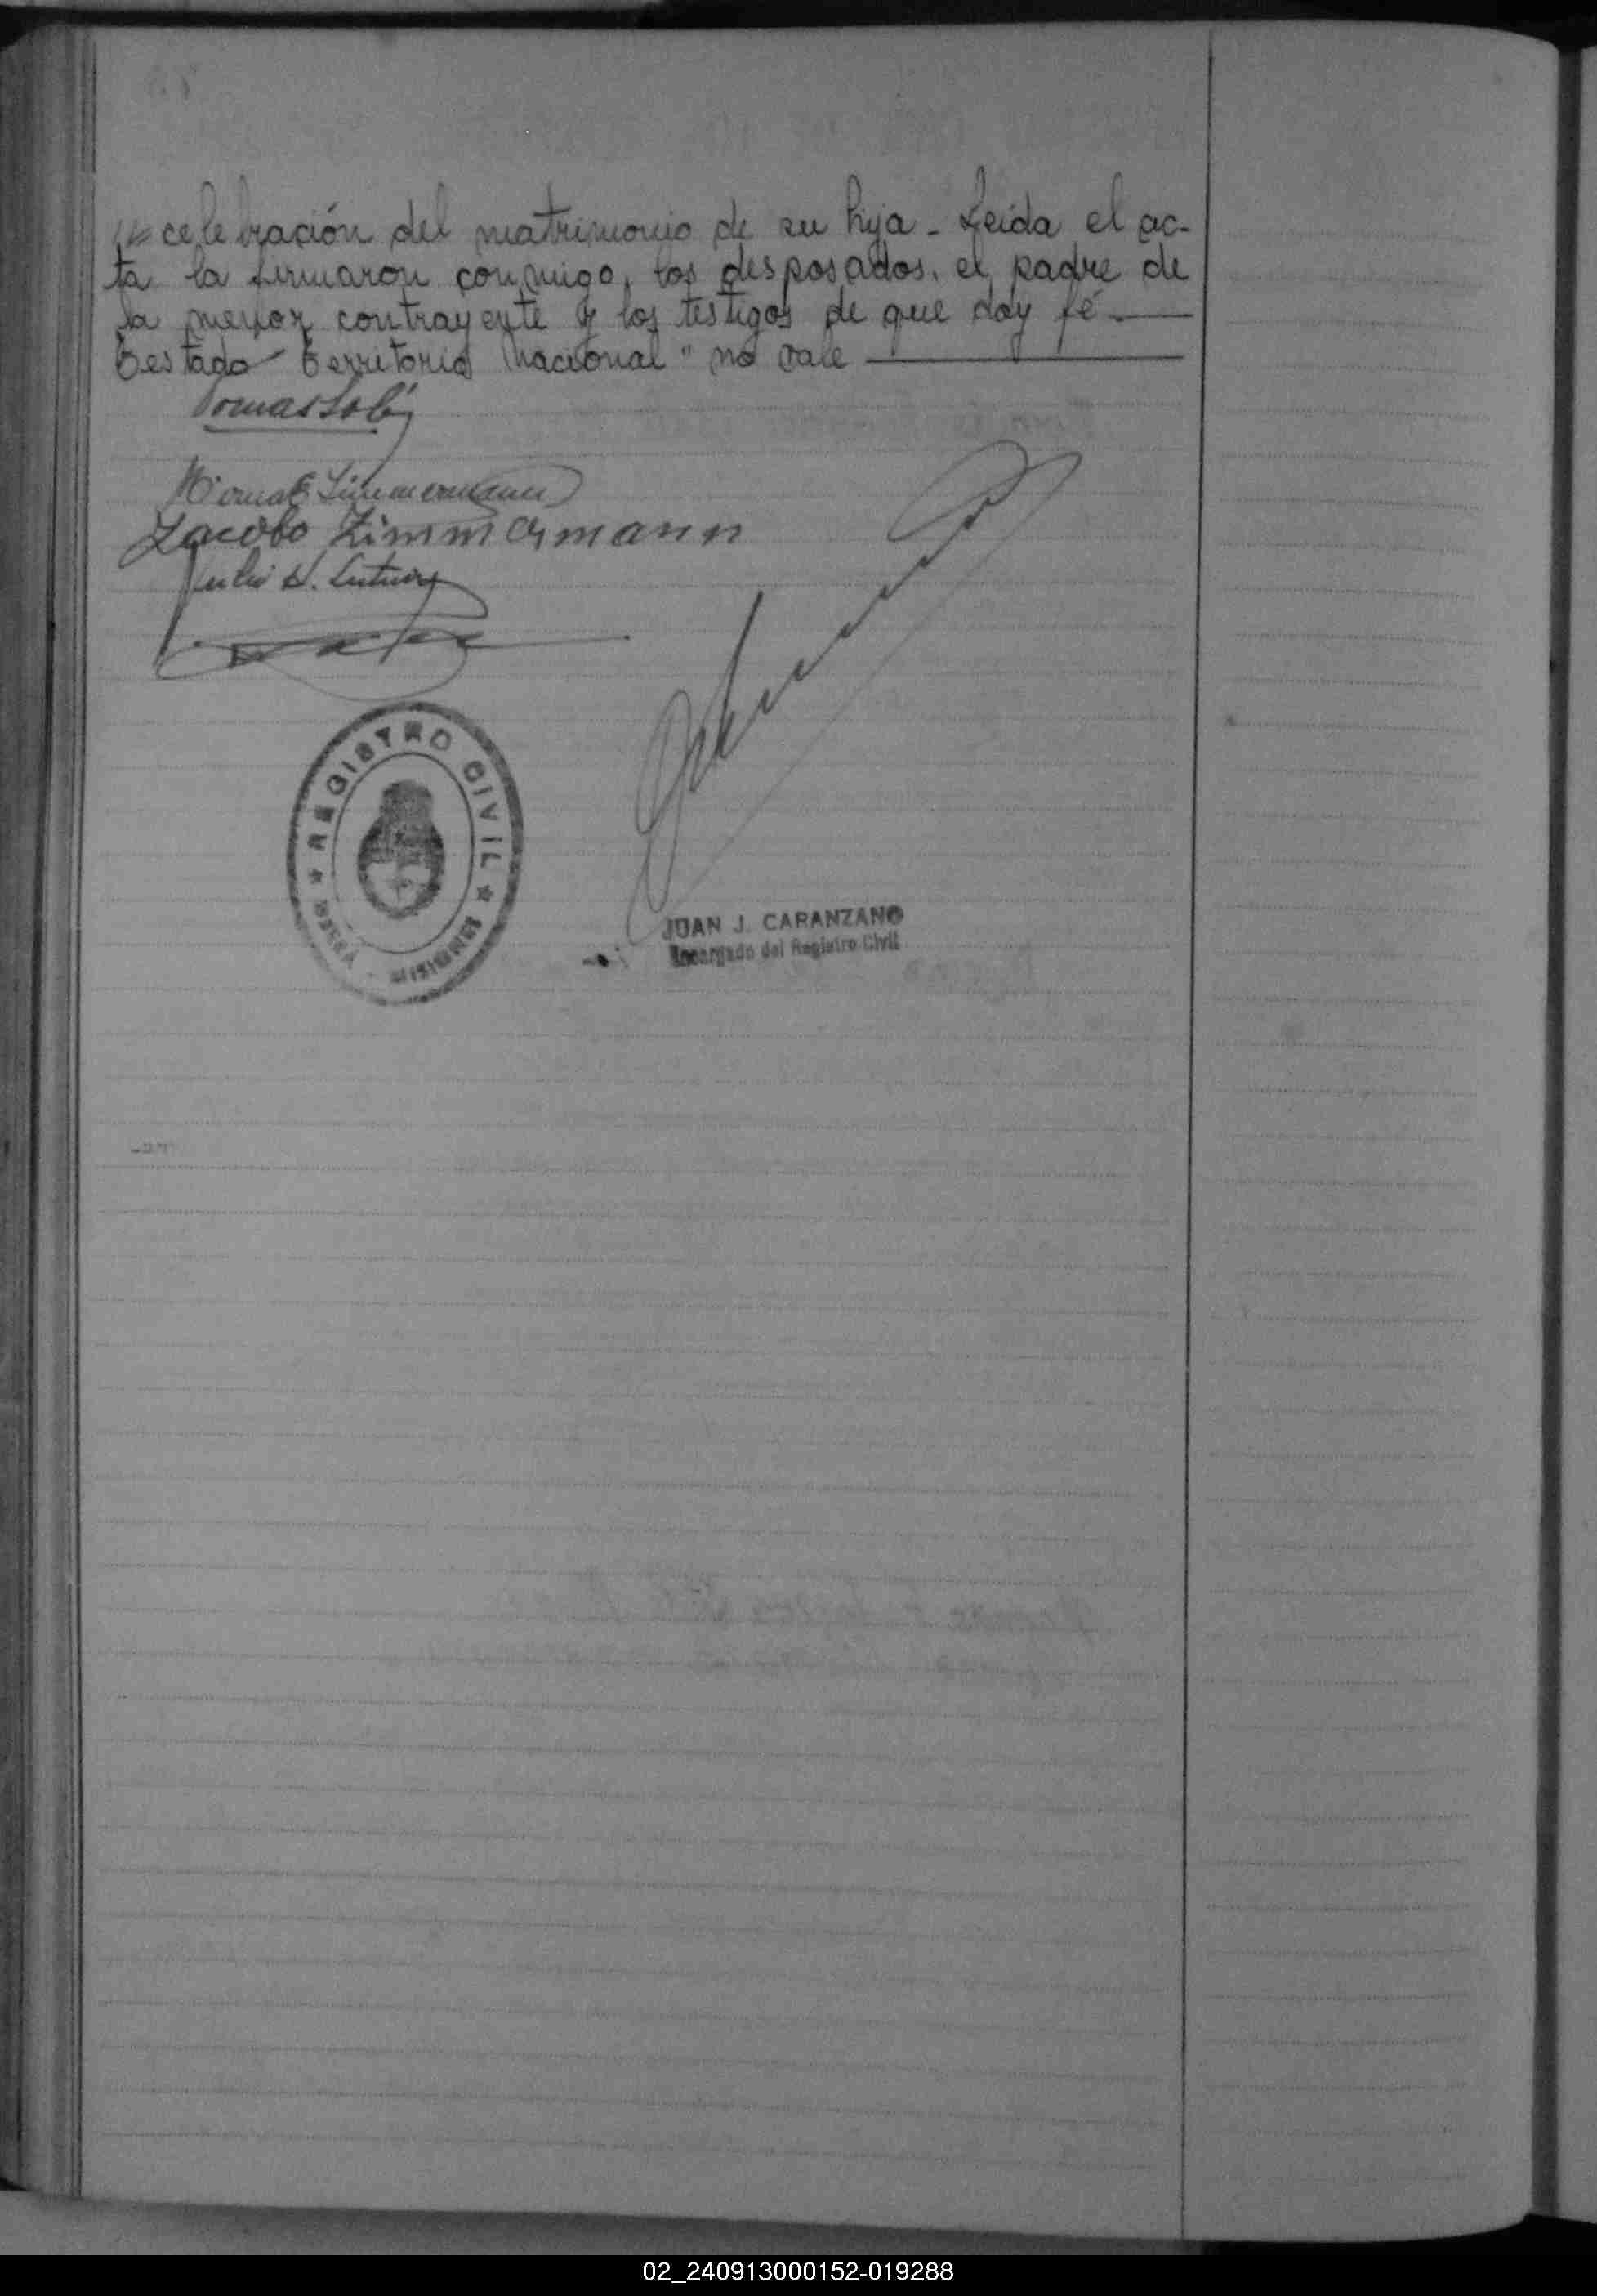 celebración del matrimonio de su hija - Leida el ac-
ta la firmaron conmigo, los desposados, el padre de
la menor contrayente y los testigos de que doy fé -
Testado " Territorio Nacional " no vale
Tomas
Zimmermann
Jacobo Zimmermann
Julio
REGISTRO CIVIL
MISIONES
JUAN J. CARANZANO
Encargado del Registro Civil
02_240913000152-019288